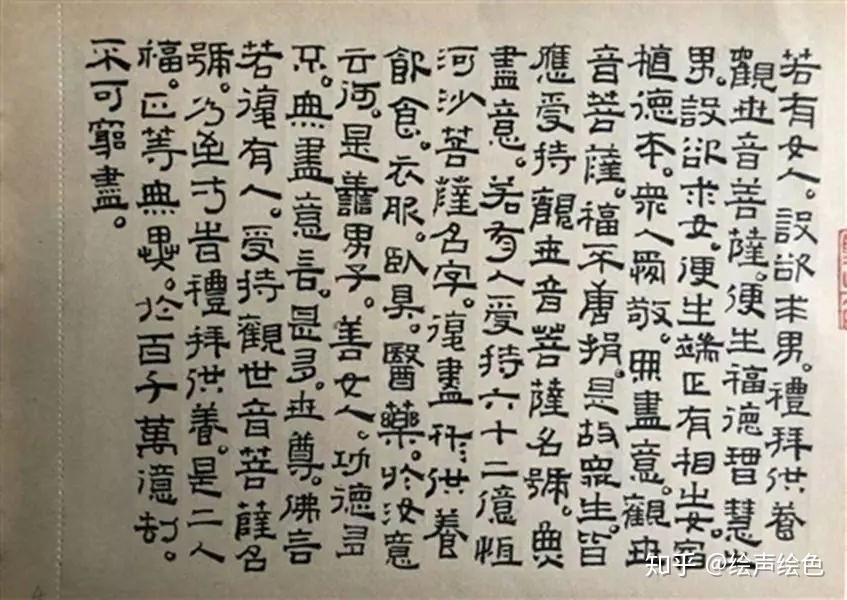 若有女人。設欲求男。禮拜供養
觀世音菩薩。便生福德智慧之
男。設欲求女。便生端正有相之女。宿
植德本。衆人愛敬。無盡意。觀世
音菩薩。福不唐捐。是故眾生。皆
應受持觀世音菩薩名號。無
盡意。若有人受持六十二億恒
河沙菩薩名字。復盡形供養
飲食。衣服。臥具。醫藥。於汝意
云何。是善男子。善女人。功德多
不。無盡意言。甚多。世尊。佛言
若復有人。受持觀世音菩薩名
號。乃至時禮拜供養。是二人
福。正等無異。於百千萬億劫。
不可窮盡。
知乎 @绘声绘色